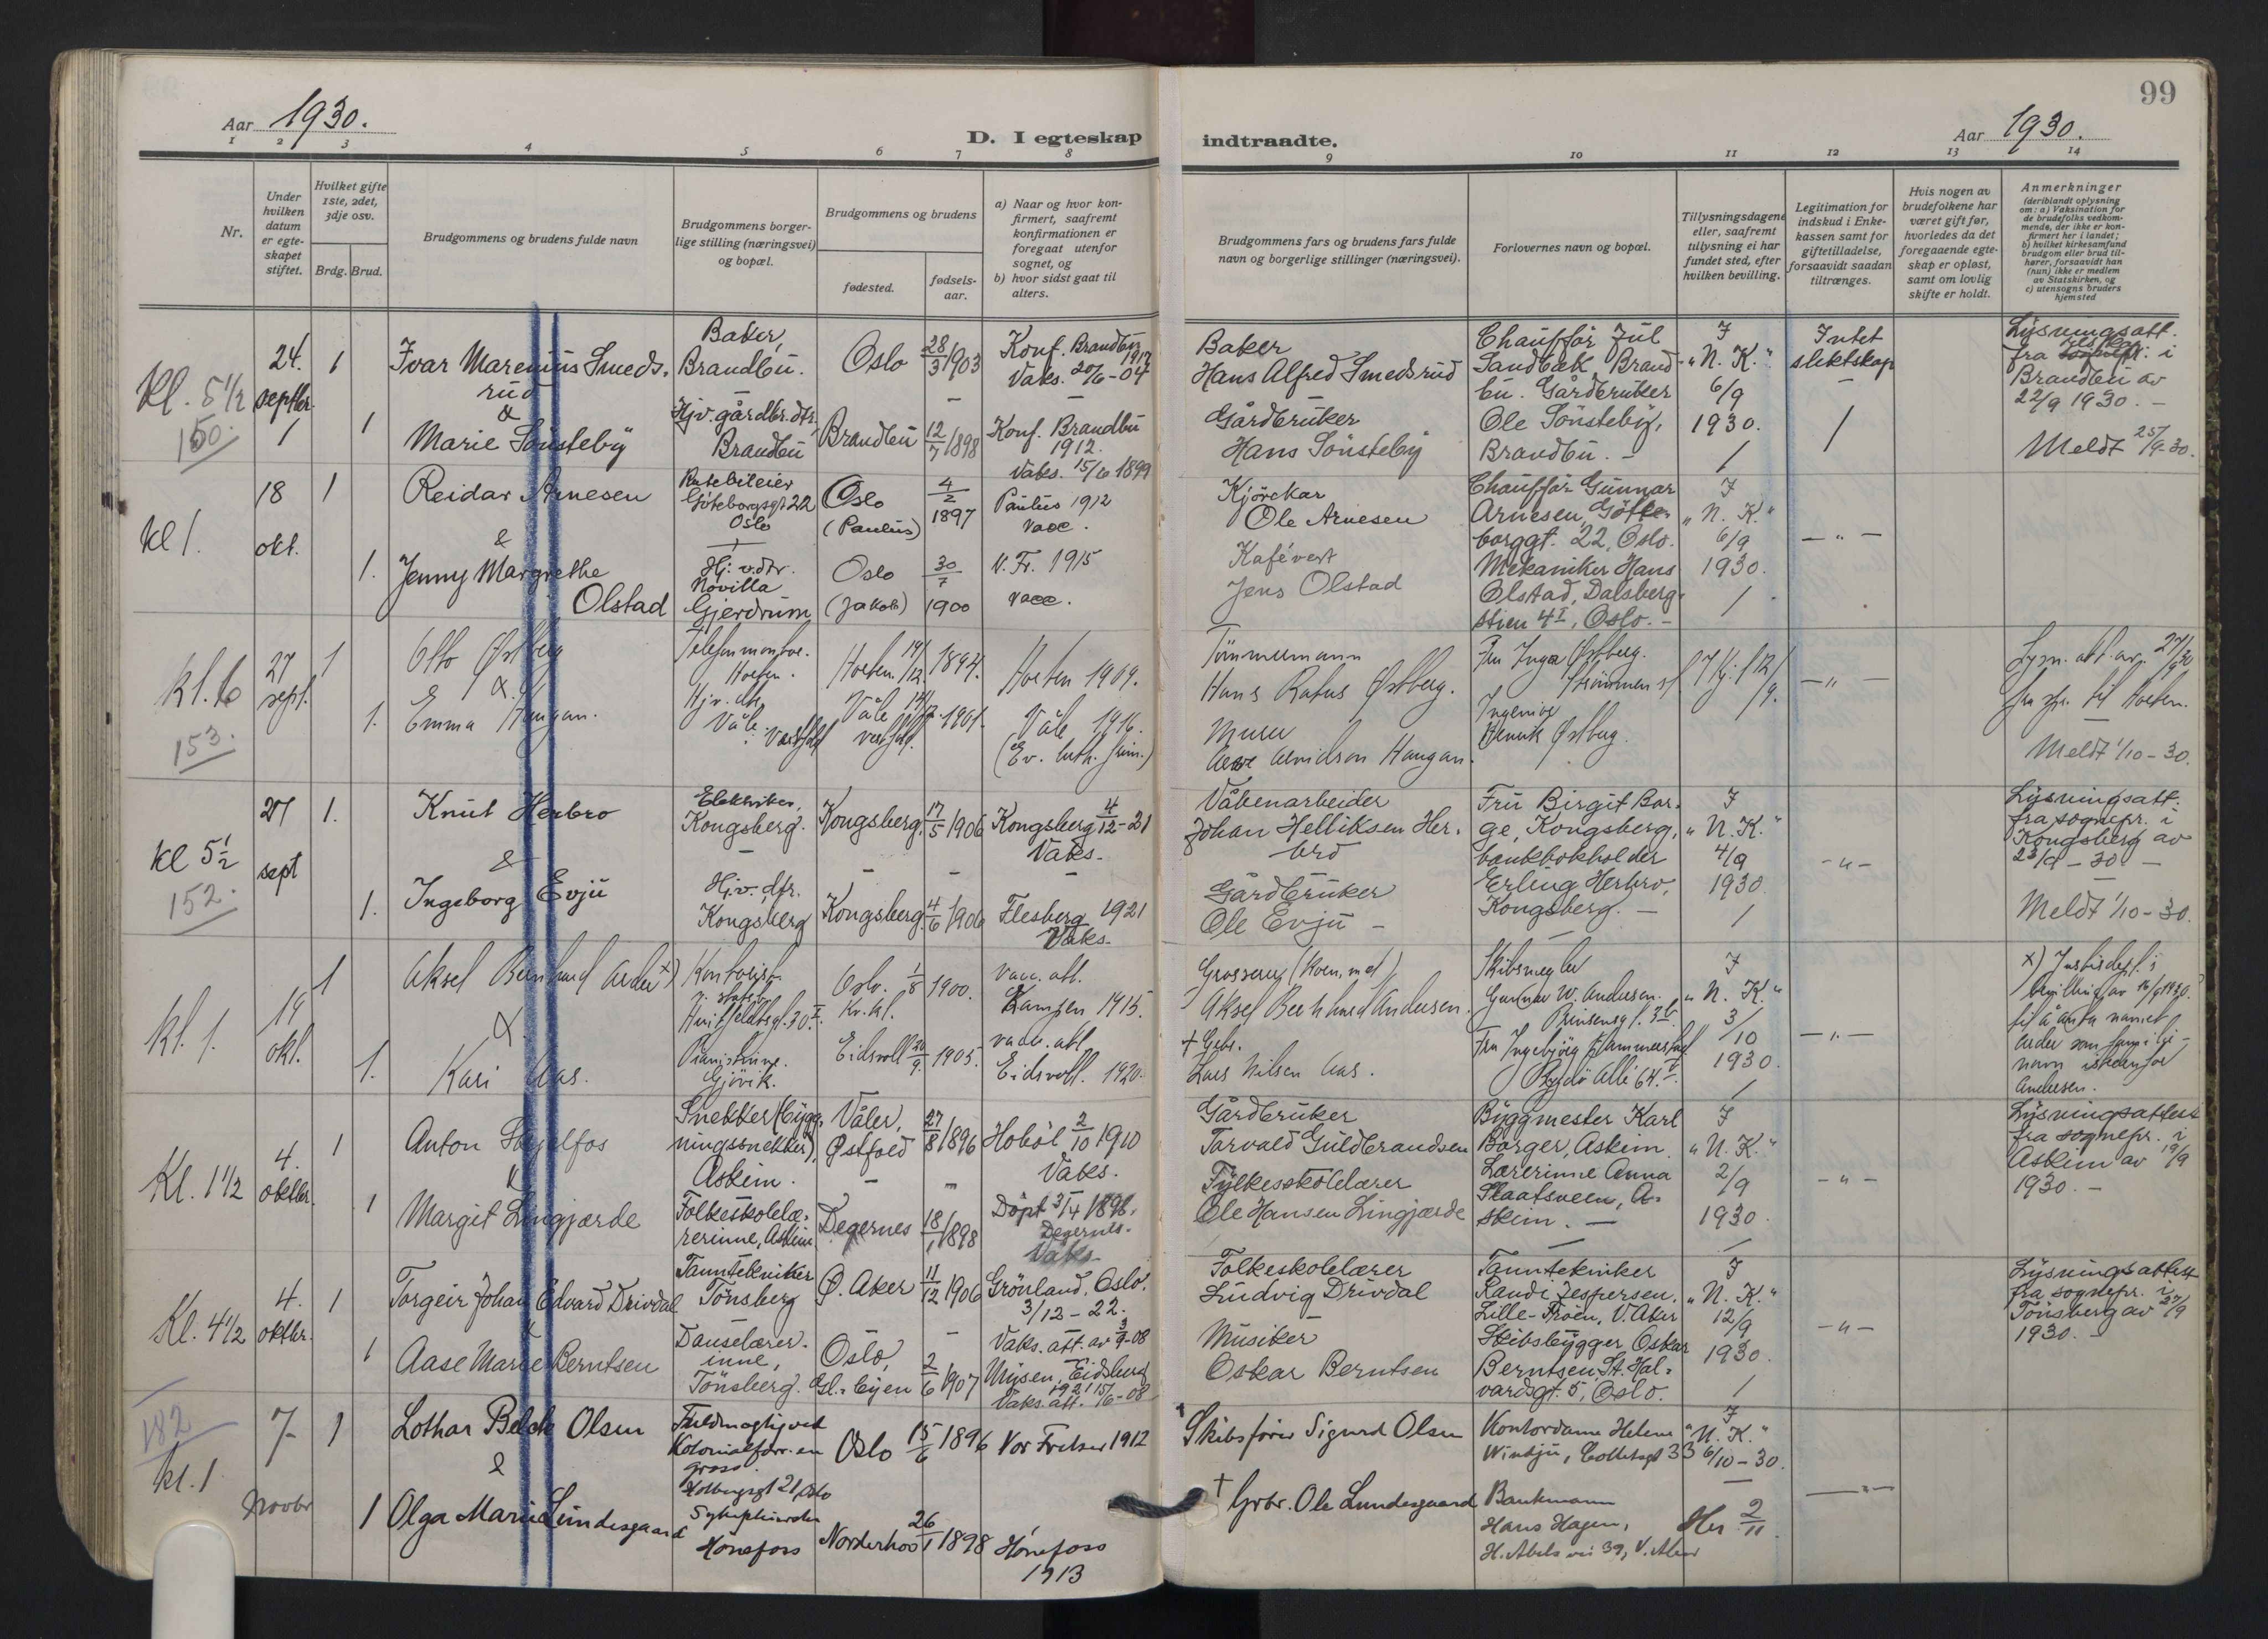 99
Aar 1930.
D. I egteskap
indtraadte.
Aar 1930.
1 2 3 4 5 6 7 8
9 10 11 12 13 14
Nr.
Under hvilken datum er egte-skapet stiftet.
Hvilket gifte 1ste, 2det, 3dje osv.
Brdg. Brud.
Brudgommens og brudens fulde navn
Brudgommens borger-lige stilling (næringsvei) og bopæl.
Brudgommens og brudens
fødested.
fødsels-aar.
a) Naar og hvor kon-firmert, saafremt konfirmationen er foregaat utenfor sognet, og
b) hvor sidst gaat til alters.
Brudgommens fars og brudens fars fulde navn og borgerlige stillinger (næringsvei).
Forlovernes navn og bopæl.
Tillysningsdagene eller, saafremt tillysning ei har fundet sted, efter hvilken bevilling.
Legitimation for indskud i Enke-kassen samt for giftetilladelse, forsaavidt saadan tiltrænges.
Hvis nogen av brudefolkene har været gift før, hvorledes da det foregaaende egte-skap er opløst, samt om lovlig skifte er holdt.
Anmerkninger
(deriblandt oplysning om: a) Vaksination for de brudefolks vedkom-mende, der ikke er kon-firmert her i landet;
b) hvilket kirkesamfund brudgom eller brud til-hører, forsaavidt han (hun) ikke er medlem av Statskirken, og
c) utensogns bruders hjemsted
Kl. 5 1/2
150.
24. septbr.
1
Ivar Marenius Smeds-
rud
&
1
Marie Sønsteby
Baker,
Brandbu.
Hjv. gårdbr. dtr,
Brandbu
Oslo 28/3 1903
Brandbu 12/7 1898
Konf. Brandbu
1917
Vaks. 20/6-04
Konf. Brandbu
1912.
Vaks. 15/6 1899
Baker
Hans Alfred Smedsrud
Gårdbruker
Hans Sønsteby
Chauffør Jul
Sandbæk Brand-
bu. Gårdbruker
Ole Sønsteby,
Brandbu. -
I
"N. K."
6/9
1930.
Intet
slektskap
Lysningsatt.
fra
i
Brandbu av
22/9 1930. -
Meldt 25/9-30.
kl 1.
18 okt.
1
Reidar Arnesen
&
1.
Jenny Margrethe
Olstad
Rutebileier
Göteborggt 22
Oslo
Hj. v. dtr.
Novilla
Gjerdrum
Oslo
(Paulus)
4/2 1897
Oslo
(Jakob)
30/7 1900
Paulus 1912
vacc.
V. Fr. 1915
vacc.
Kjørekar
Ole Arnesen
Kafévert
Jens Olstad
Chauffør Gunnar
Arnesen, Götte-
borggt. 22, Oslo.
Mekaniker Hans
Olstad, Dalsberg-
stien 4 I, Oslo. -
I
"N. K."
6/9
1930.
- " -
Kl. 6
153.
27 sept.
1
Otto Østberg
&
1.
Emma Haugan.
Telefonmontør.
Horten.
Hjv. dtr.
Våle
Vestfold
Horten 14/12 1894.
Våle
Vestfold.
1901.
Horten 1909.
Våle 1916.
(Ev. luth. frim.)
Tømmermann
Hans Rafus Østberg.
Murer
Arvidson Haugan.
Fru Inga Østberg.
Ingeniør
Henrik Østberg.
- " -
Lysn. att. av. 27/9 30
fra spr. til Horten.
Meldt 1/10-30.
kl 5 1/2
152.
27 sept
1.
Knut Herbro
&
1.
Ingeborg Evju
Elektriker,
Kongsberg.
Hj.v. dtr.
Kongsberg
Kongsberg. 17/5 1906
Kongsberg. 4/6 1906
Kongsberg 4/12-21
Vaks.
Flesberg 1921
Vaks.
Våbenarbeider
Johan Helliksen Her-
bro
Gårdbruker
Ole Evju -
Fru Birgit Bor-
ge, Kongsberg,
bankbokholder
Erling Herbro,
Kongsberg. -
I
"N. K."
4/9
1930.
- " -
Lysningsatt.
fra sognepr. i
Kongsberg av
23/9-30 -
Meldt 1/10-30.
kl. 1.
19 okt.
1
Aksel Bernhard Arder x)
&
1.
Kari Aas.
Kontorist
Huitfeldtsgt. 30 I.
Pianistinne.
Gjøvik.
Oslo. 1/8 1900.
Eidsvoll 20/9 1905.
vacc. att.
Kampen 1915.
vacc. att.
Eidsvoll. 1920.
Grosserer
Aksel Bernhard Andersen.
+ Gbr.
Lars Nilsen Aas.
Skibsmegler
Gunnar W. Andersen.
Prinsensgt. 3
Fru Ingebjørg Hammerstad
Bygdø Allé 64.
I
"N. K."
3/10
1930
- " -
x) Justisdept.s
bevilling av 16/9 1930.
til å anta navnet
Arder som familie-
navn istedenfor
Andersen.
Kl. 1 1/2
4. oktbr.
1
Anton
&
1
Margit Lingjærde
Snekker (byg-
ningssnekker),
Askim.
Folkeskolelæ-
rerinne, Askim
Våler,
Østfold
27/8 1896
Degernes 18/1 1898
Hobøl 2/10 1910
Vaks.
Døpt 3/4 1898.
Degernes.
Vaks
Gårdbruker
Torvald Guldbrandsen
Fylkesskolelærer
Ole Hansen Lingjærde
Byggmester Karl
Borger, Askim.
Lærerinne Anna
Slaatsveen, A-
skim. -
I
"N. K."
2/9
1930.
- " -
Lysningsattest
fra sognepr. i
Askim av 19/9
1930. -
Kl. 4 1/2
4. oktbr.
1
Torgeir Johan Edvard Drivdal
&
1
Aase Marie Berntsen
Tanntekniker
Tønsberg
Danselærer-
inne,
Tønsberg.
Ø. Aker 11/12 1906
Oslo,
2/6 1907
Grønland, Oslo.
3/12-22.
Vaks. att. av 3/9-08
Mysen, Eidsberg
1921
Vaks. att. 15/6-08
Folkeskolelærer
Ludvig Drivdal
Musiker
Oskar Berntsen
Tanntekniker
Randi Jespersen,
Lille-Frøen, V. Aker
Skibsbygger Oskar
Berntsen, St. Hal-
vardsgt. 5, Oslo.
I
"N. K."
12/9
1930.
- " -
Lysningsattest
fra sognepr. i
Tønsberg av 27/9
1930. -
182
kl. 1
7 Novbr
1
Lothar Olsen
&
1
Olga Marie Lundesgaard
Fuldmægtig ved
Kolonialforr. en
gross.
Holbergsgt 21, Oslo
Hønefoss
Oslo 15/6 1896
Norderhov 26/1 1898
Vor Frelser 1912
Hønefoss
1913
Skibsfører Sigurd Olsen
† Grbr. Ole Lundesgaard
Kontordame Helene
Windju, Colletsgt 33
Bankmann
Hans Hagen,
H. Abels vei 39, V. Aker
I
"N. K."
6/10-30.
Her 2/11.
- " -